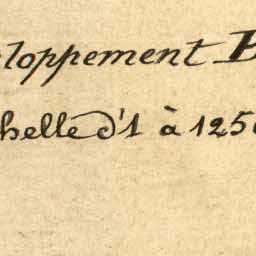 loppement
helle d'1 à 125